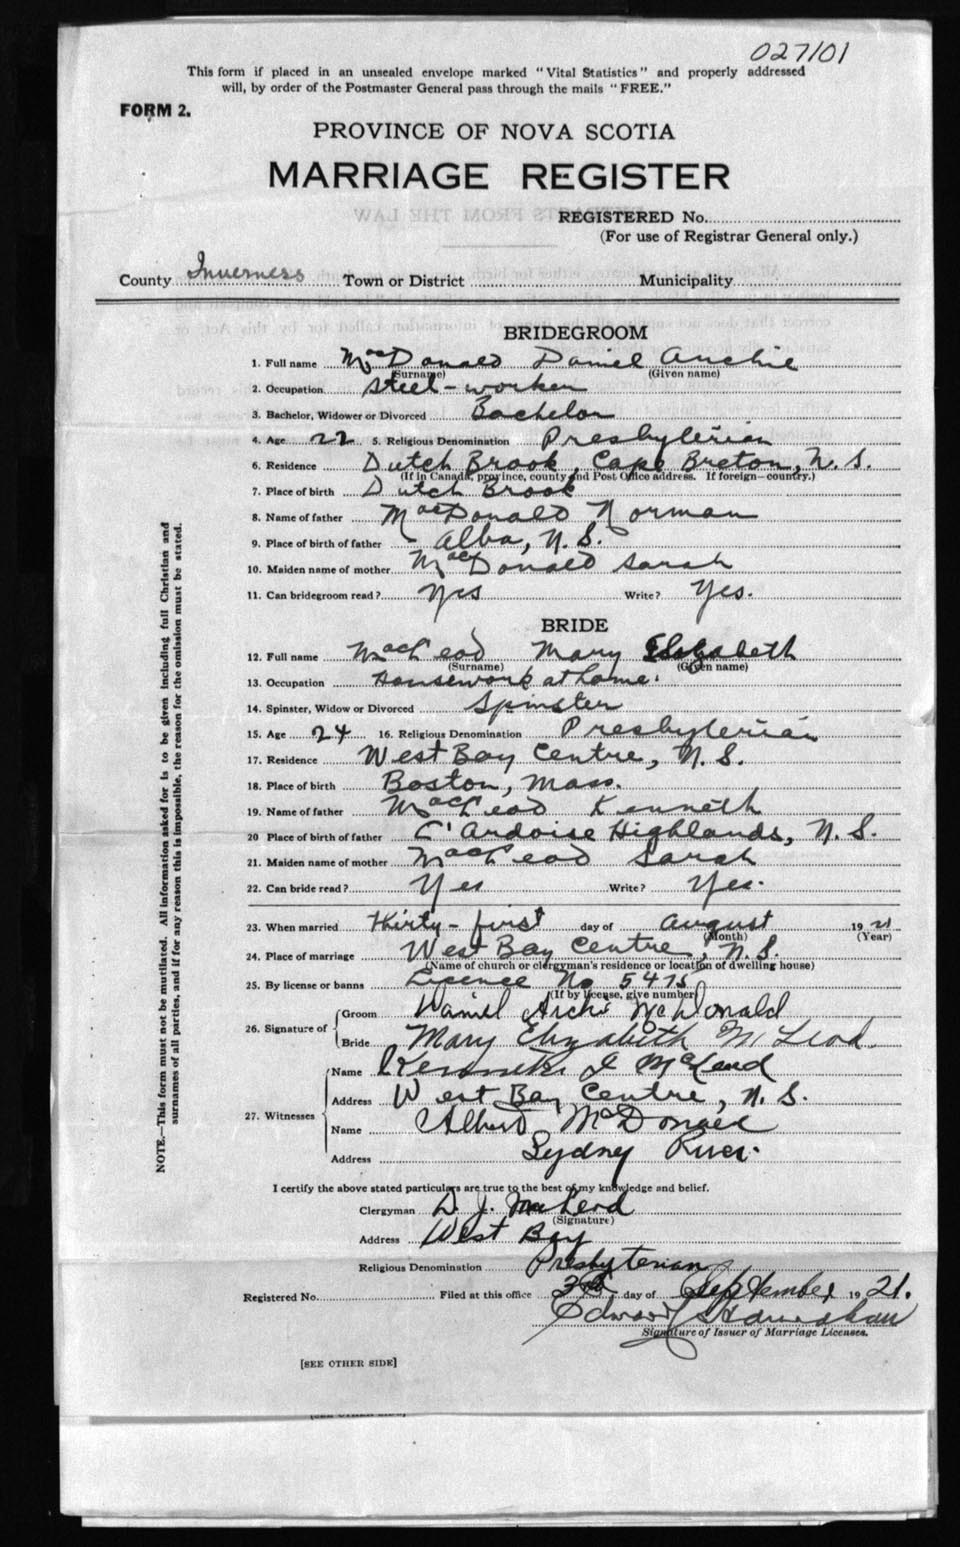 027101
This form if placed in an unsealed envelope marked "Vital Statistics" and properly addressed
will, by order of the Postmaster General pass through the mails "FREE."
FORM 2.
PROVINCE OF NOVA SCOTIA
MARRIAGE REGISTER
REGISTERED No.
(For use of Registrar General only.)
County Inverness Town or District Municipality
BRIDEGROOM
1. Full name MacDonald Daniel Archie
(Surname) (Given name)
2. Occupation Steel-worker
3. Bachelor, Widower or Divorced Bachelor
4. Age 22 5. Religious Denomination Presbyterian
6. Residence Dutch Brook, Cape Breton, N. S.
(If in Canada, province, county and Post Office address. If foreign—country.)
7. Place of birth Dutch Brook
8. Name of father MacDonald Norman
9. Place of birth of father Alba, N. S.
10. Maiden name of mother MacDonald Sarah
11. Can bridegroom read? Yes Write? Yes.
BRIDE
12. Full name MacLeod Mary Elizabeth
(Surname) (Given name)
13. Occupation Housework at home.
14. Spinster, Widow or Divorced Spinster
15. Age 24 16. Religious Denomination Presbyterian
17. Residence West Bay Centre, N. S.
18. Place of birth Boston, Mass.
19. Name of father MacLeod Kenneth
20 Place of birth of father L'Ardoise Highlands, N. S.
21. Maiden name of mother MacLeod Sarah
22. Can bride read? Yes Write? Yes.
23. When married Thirty-first day of August 1921
(Month) (Year)
24. Place of marriage West Bay Centre, N. S.
(Name of church or clergyman's residence or location of dwelling house)
25. By license or banns Licence No 5475
(If by license, give number)
26. Signature of
Groom Daniel Archi McDonald
Bride Mary Elizabeth McLeod.
27. Witnesses
Name Kenneth J McLeod
Address West Bay Centre, N. S.
Name Albert McDonald
Address Sydney River.
I certify the above stated particulars are true to the best of my knowledge and belief.
Clergyman D. J. MacLeod
(Signature)
Address West Bay
Religious Denomination Presbyterian
Registered No. Filed at this office day of September 1921.
Edward
Signature of Issuer of Marriage Licenses.
[SEE OTHER SIDE]
NOTE.—This form must not be mutilated. All information asked for is to be given including full Christian and
surnames of all parties, and if for any reason this is impossible, the reason for the omission must be stated.